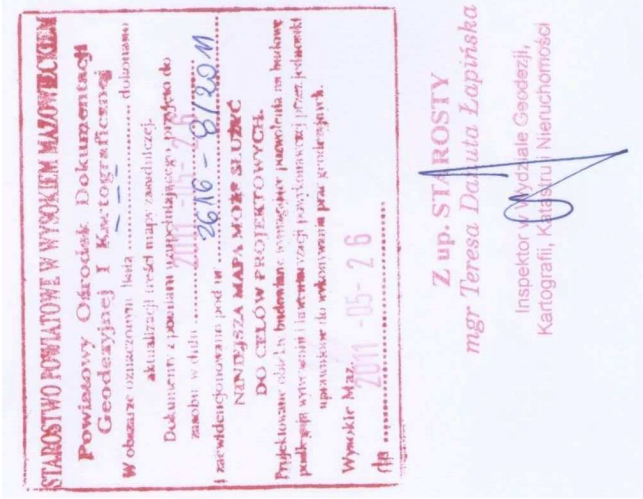 STAROSTWO POWIATOWE W WYSOKIEM MAZOWIECKIEM
Powiatowy Ośrodek Dokumentacji
Geodezyjnej I Kartograficznej
W obszarze oznaczonym linią ........ dokonano
aktualizacji treści mapy zasadniczej.
Dokumenty z pomiaru uzupełniającego przyjęto do
zasobu w dniu ........ 2011 -05- 26
i zaewidencjonowano pod nr 2616 - 8/2011
NINIEJSZA MAPA MOŻE SŁUŻYĆ
DO CELÓW PROJEKTOWYCH.
Projektowane obiekty budowlane wymagające pozwolenia na budowę
podlegają wytyczeniu i inwentaryzacji powykonawczej przez jednostki
uprawnione do wykonywania prac geodezyjnych.
Wysokie Maz.
dn 2011 -05- 2 6
Z up. STAROSTY
mgr Teresa Danuta Łapińska
Inspektor w Wydziale Geodezji,
Kartografii, Katastru i Nieruchomości